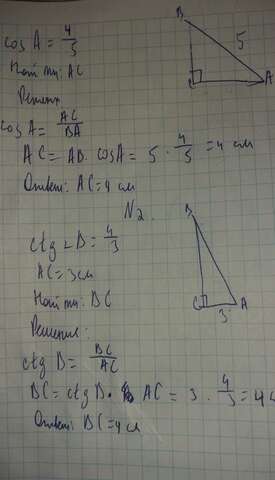 cos A = 4/5
Найти: AC
Решение:
cos A = AC/BA
AC = AB · cos A = 5 · 4/5 = 4 см
Ответ: AC = 4 см
B
5
C
A
N2.
ctg ∠B = 4/3
AC = 3 см
Найти: BC
Решение:
ctg B = BC/AC
BC = ctg B · AC = 3 · 4/3 = 4 с
Ответ: BC = 4 см
B
C
A
3